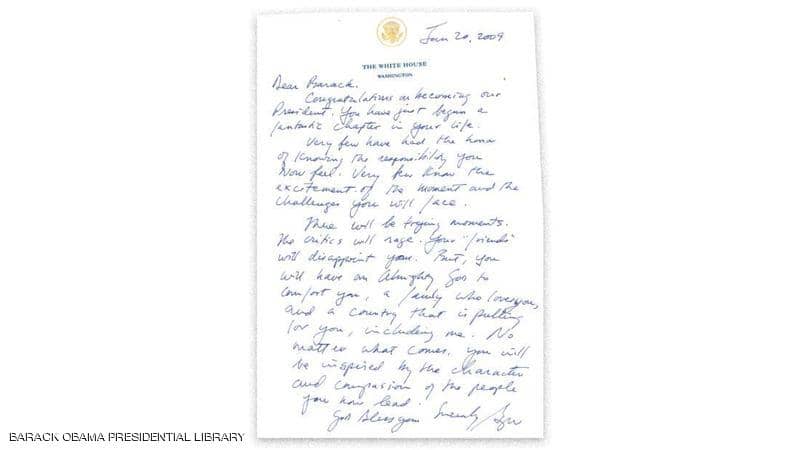 Jan 20, 2009
THE WHITE HOUSE
WASHINGTON
Dear Barack.
Congratulations on becoming our
President. You have just begun a
fantastic chapter in your life.
Very few have had the honor
of knowing the responsibility you
now feel. Very few know the
excitement of the moment and the
challenges you will face.
There will be trying moments.
The critics will rage. Your "friends"
will disappoint you. But, you
will have an Almighty God to
comfort you, a family who loves you,
and a country that is pulling
for you, including me. No
matter what comes, you will
be inspired by the character
and compassion of the people
you now lead.
God bless you
Sincerely,
BARACK OBAMA PRESIDENTIAL LIBRARY